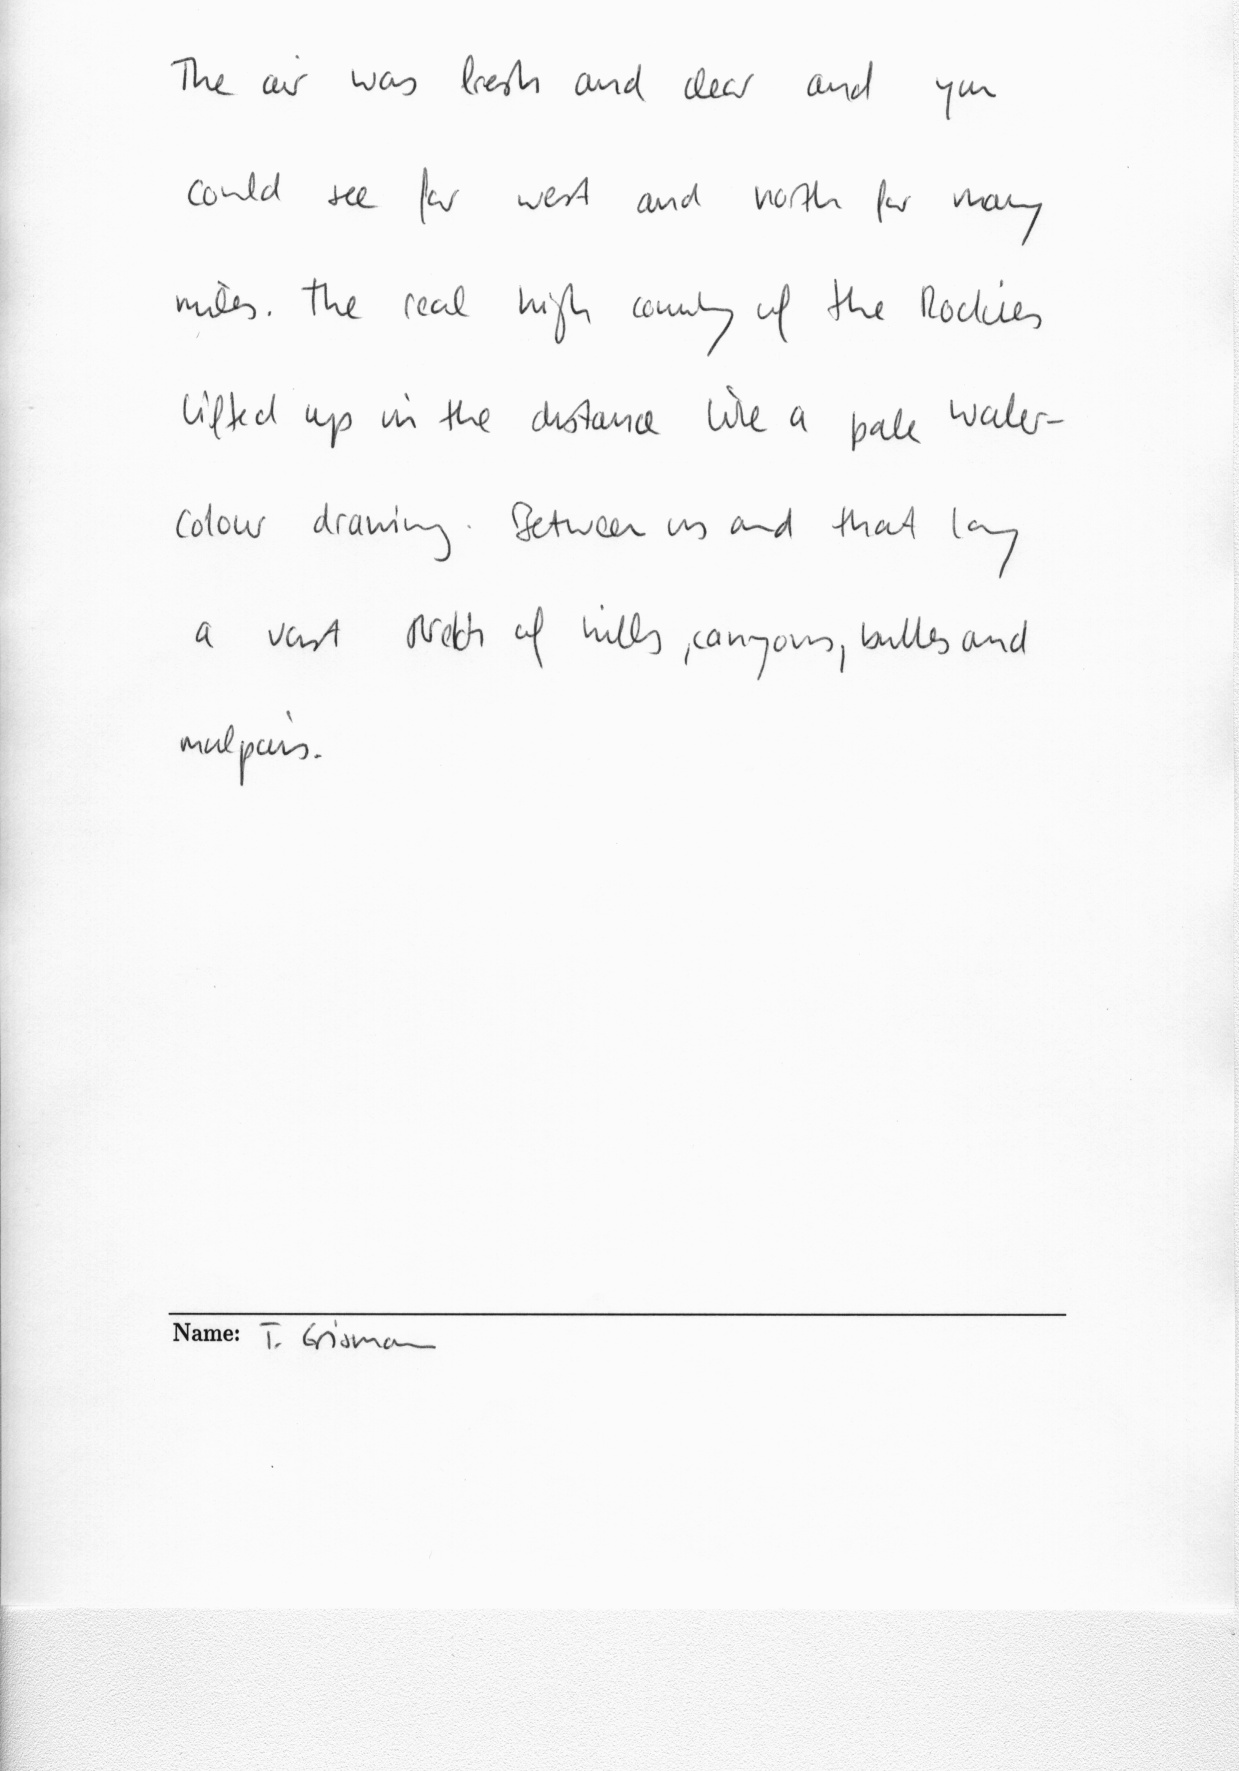 The air was fresh and clear and you
could see far west and north for many
miles. The real high country of the Rockies
lifted up in the distance like a pale water-
colour drawing. Between us and that lay
a vast stretch of hills, canyons, buttes and
malpais.
Name: T. Grisman